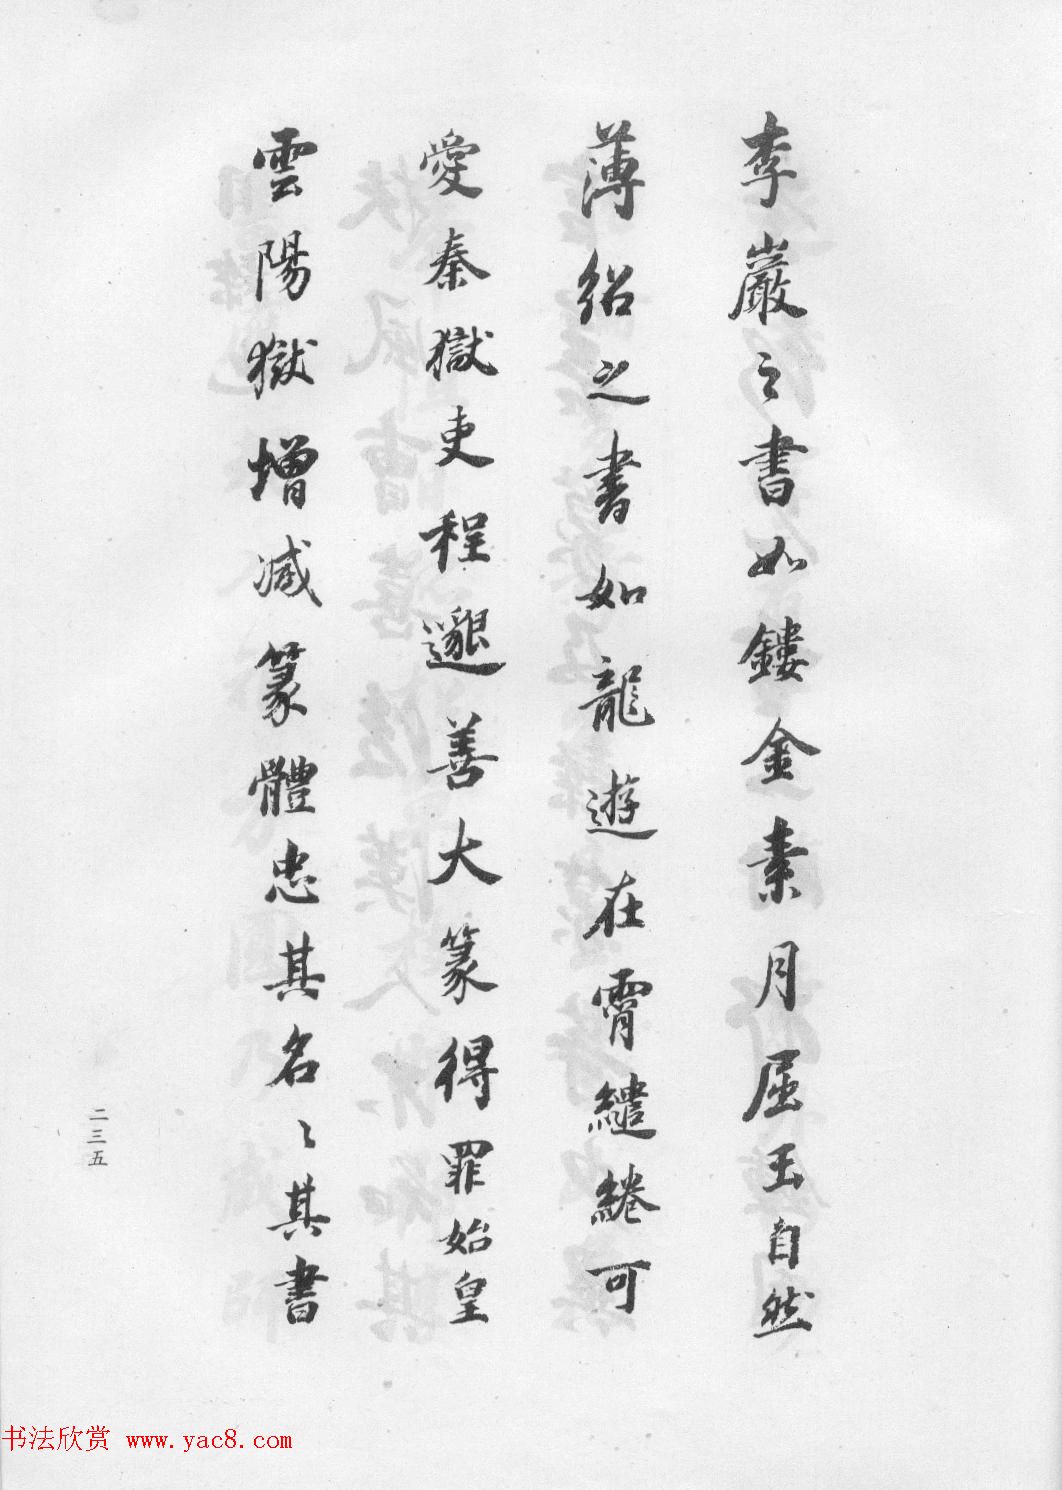 李巖之書如鏤金素月屈玉自然
薄紹之書如龍遊在霄繾綣可
愛秦獄吏程邈善大篆得罪始皇
雲陽獄增減篆體忠其名〻其書
二三五
书法欣赏 www.yac8.com